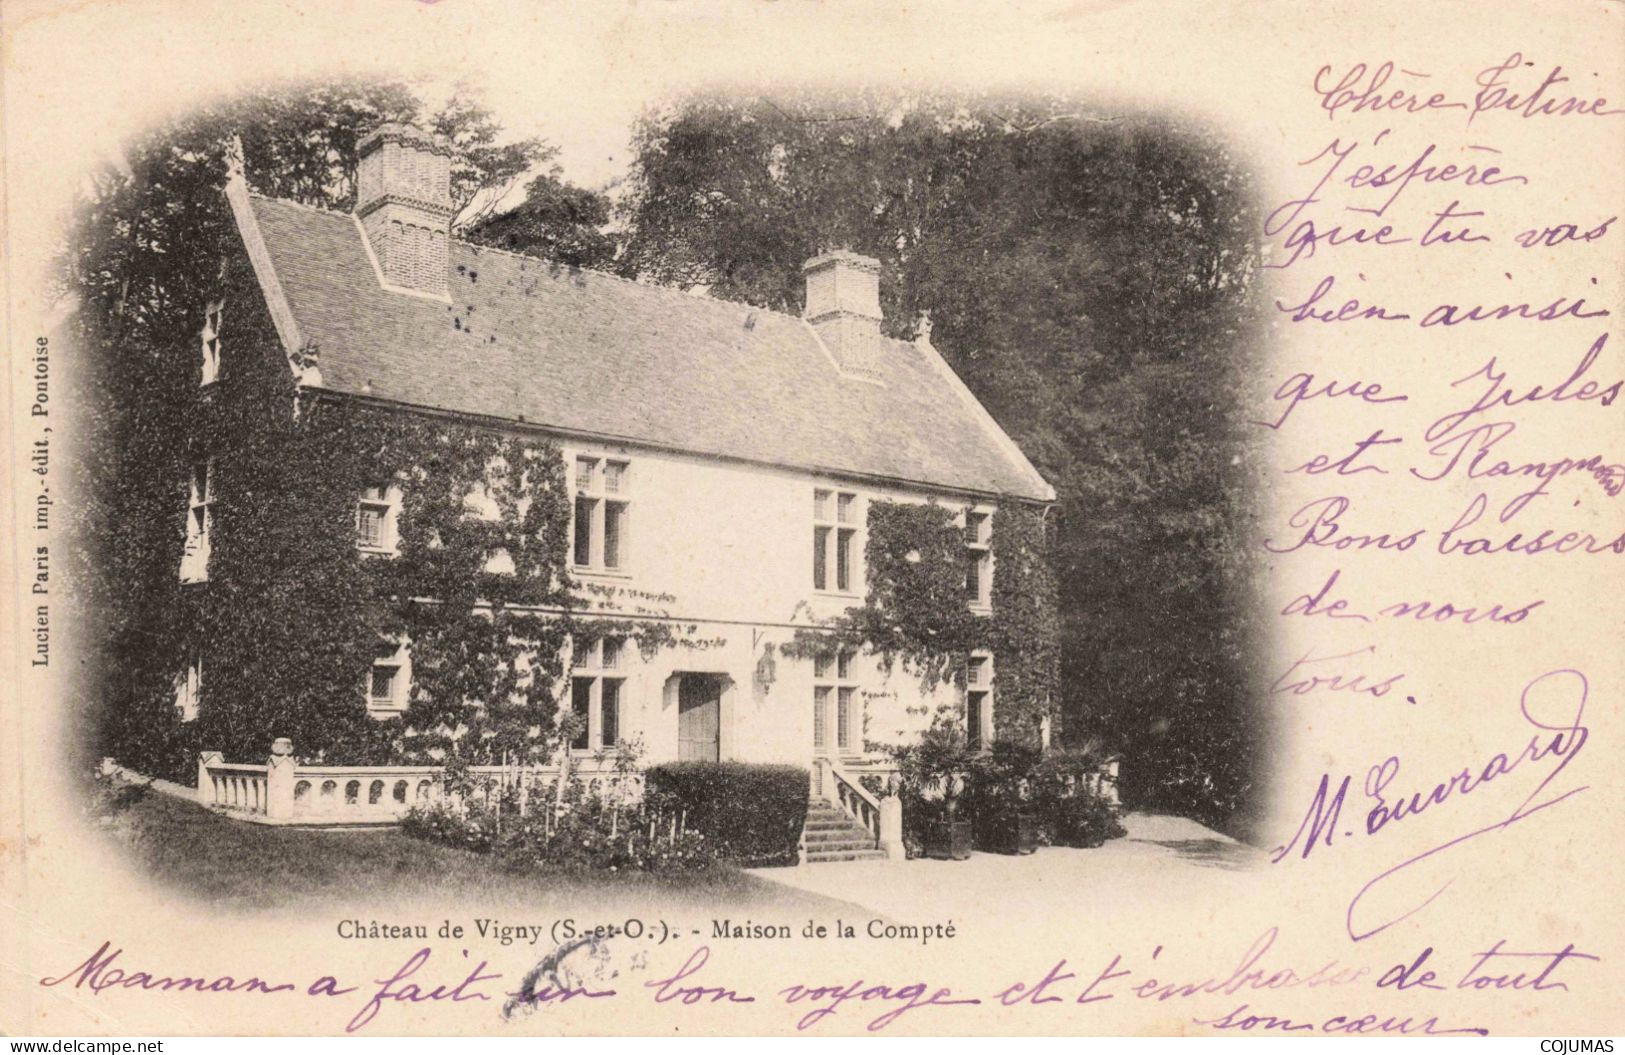 Chère Titine
J'éspère
que tu vas
bien ainsi
que Jules
et Raymond
Bons baisers
de nous
tous.
M. Euvrard
Lucien Paris imp.-édit., Pontoise
Château de Vigny (S.-et-O.). - Maison de la Compté
Maman a fait un bon voyage et t'embrasse de tout
son cœur
www.delcampe.net
COJUMAS